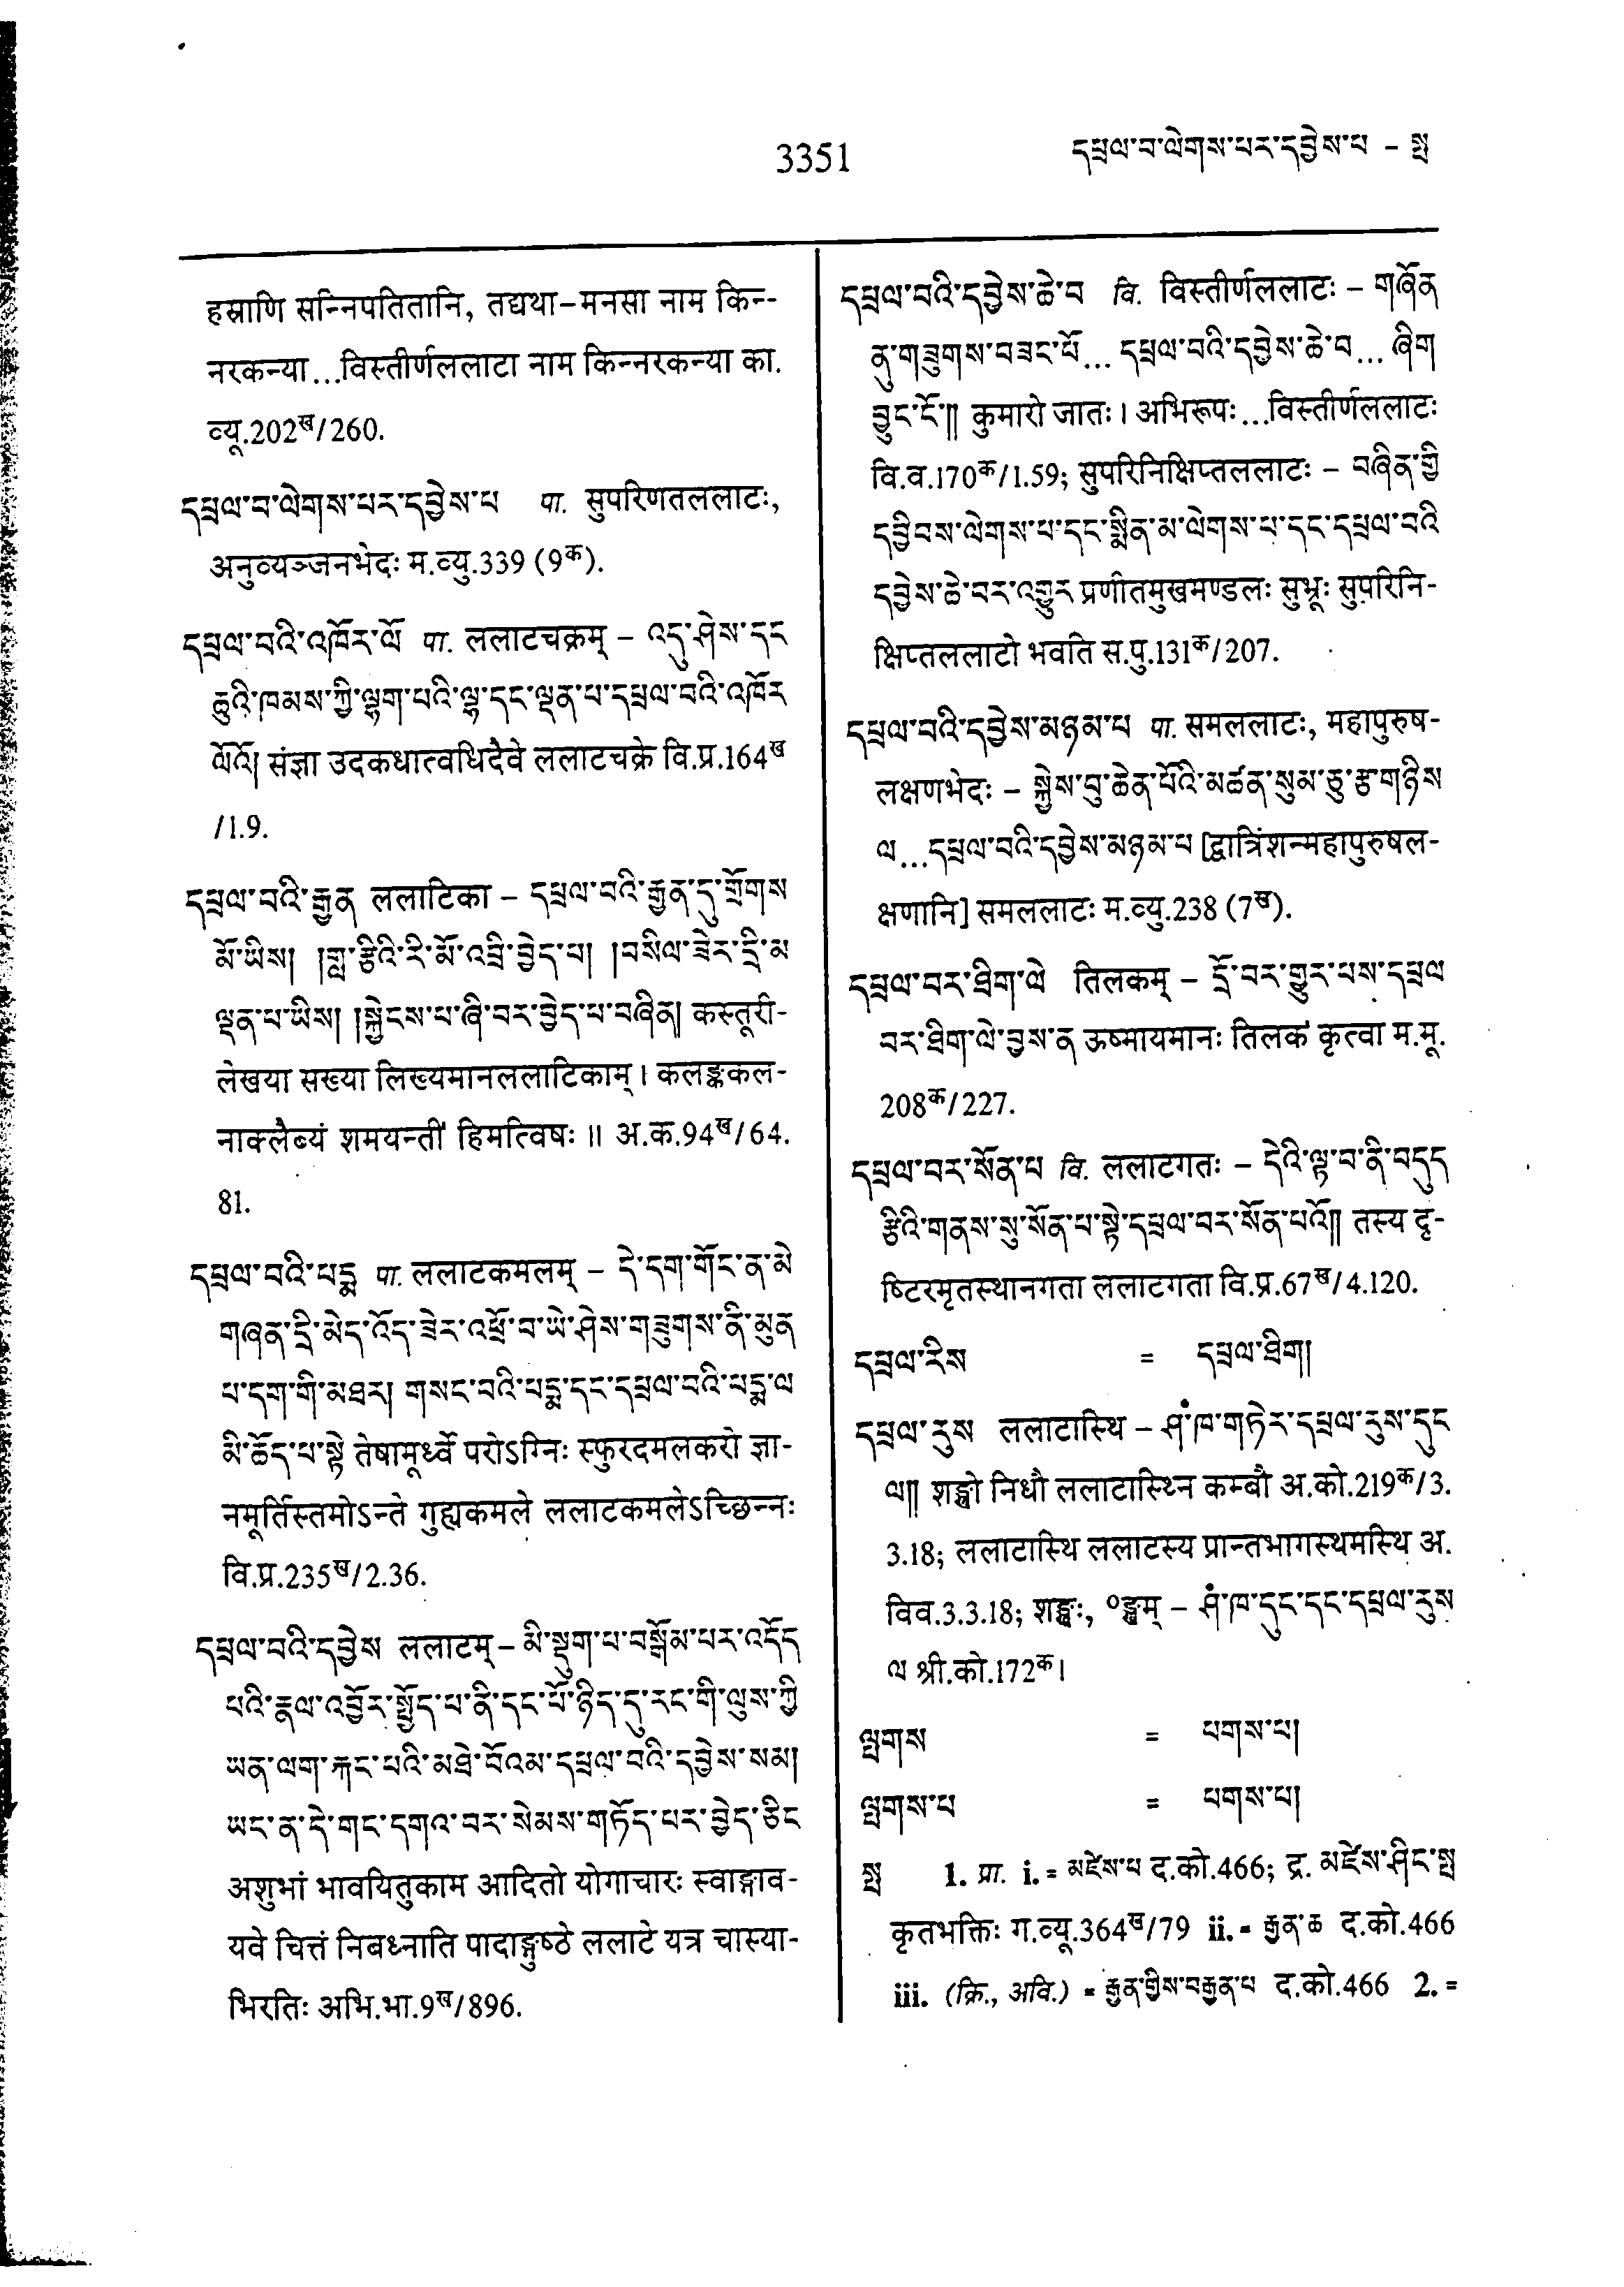 3351
དཔྲལ་བ་ལེགས་པར་དབྱེས་པ – སྤ
हस्राणि सन्निपतितानि, तद्यथा–मनसा नाम किन्-
नरकन्या...विस्तीर्णललाटा नाम किन्नरकन्या का.
व्यू.202ख/260.
དཔྲལ་བ་ལེགས་པར་དབྱེས་པ पा. सुपरिणतललाटः,
अनुव्यञ्जनभेदः म.व्यु.339 (9क).
དཔྲལ་བའི་འཁོར་ལོ पा. ललाटचक्रम् – འདུ་ཤེས་དང
ཆུའི་ཁམས་ཀྱི་ལྷག་པའི་ལྷ་དང་ལྡན་པ་དཔྲལ་བའི་འཁོར
ལོའོ། संज्ञा उदकधात्वधिदैवे ललाटचक्रे वि.प्र.164ख
/1.9.
དཔྲལ་བའི་རྒྱན ललाटिका – དཔྲལ་བའི་རྒྱན་དུ་གྲོགས
མོ་ཡིས། །གླ་རྩིའི་རི་མོ་འབྲི་བྱེད་པ། །བསིལ་ཟེར་དྲི་མ
ལྡན་པ་ཡིས། །སྐྱེངས་པ་ཞི་བར་བྱེད་པ་བཞིན། कस्तूरी-
लेखया सख्या लिख्यमानललाटिकाम्। कलङ्ककल-
नाक्लैब्यं शमयन्तीं हिमत्विषः॥ अ.क.94ख/64.
81.
དཔྲལ་བའི་པདྨ पा. ललाटकमलम् – དེ་དག་གོང་ན་མེ
གཞན་དྲི་མེད་འོད་ཟེར་འཕྲོ་བ་ཡེ་ཤེས་གཟུགས་ནི་མུན
པ་དག་གི་མཐར། གསང་བའི་པདྨ་དང་དཔྲལ་བའི་པདྨ་ལ
མི་ཆོད་པ་སྟེ तेषामूर्ध्वे परोऽग्निः स्फुरदमलकरो ज्ञा-
नमूर्तिस्तमोऽन्ते गुह्यकमले ललाटकमलेऽच्छिन्नः
वि.प्र.235ख/2.36.
དཔྲལ་བའི་དབྱེས ललाटम् – མི་སྡུག་པ་བསྒོམ་པར་འདོད
པའི་རྣལ་འབྱོར་སྤྱོད་པ་ནི་དང་པོ་ཉིད་དུ་རང་གི་ལུས་ཀྱི
ཡན་ལག་རྐང་པའི་མཐེ་བོའམ་དཔྲལ་བའི་དབྱེས་སམ།
ཡང་ན་དེ་གང་དགའ་བར་སེམས་གཏོད་པར་བྱེད་ཅིང
अशुभां भावयितुकाम आदितो योगाचारः स्वाङ्गाव-
यवे चित्तं निबध्नाति पादाङ्गुष्ठे ललाटे यत्र चास्या-
भिरतिः अभि.भा.9ख/896.
དཔྲལ་བའི་དབྱེས་ཆེ་བ वि. विस्तीर्णललाटः – གཞོན
ནུ་གཟུགས་བཟང་པོ... དཔྲལ་བའི་དབྱེས་ཆེ་བ... ཞིག
བྱུང་ངོ་།། कुमारो जातः। अभिरूपः...विस्तीर्णललाटः
वि.व.170क/1.59; सुपरिनिक्षिप्तललाटः – བཞིན་གྱི
དབྱིབས་ལེགས་པ་དང་སྨིན་མ་ལེགས་པ་དང་དཔྲལ་བའི
དབྱེས་ཆེ་བར་འགྱུར प्रणीतमुखमण्डलः सुभ्रूः सुपरिनि-
क्षिप्तललाटो भवति स.पु.131क/207.
དཔྲལ་བའི་དབྱེས་མཉམ་པ पा. समललाटः, महापुरुष-
लक्षणभेदः – སྐྱེས་བུ་ཆེན་པོའི་མཚན་སུམ་ཅུ་རྩ་གཉིས
ལ...དཔྲལ་བའི་དབྱེས་མཉམ་པ [द्वात्रिंशन्महापुरुषल-
क्षणानि] समललाटः म.व्यु.238 (7ख).
དཔྲལ་བར་ཐིག་ལེ तिलकम् – དྲོ་བར་གྱུར་པས་དཔྲལ
བར་ཐིག་ལེ་བྱས་ན ऊष्मायमानः तिलकं कृत्वा म.मू.
208क/227.
དཔྲལ་བར་སོན་པ वि. ललाटगतः – དེའི་ལྟ་བ་ནི་བདུད
རྩིའི་གནས་སུ་སོན་པ་སྟེ་དཔྲལ་བར་སོན་པའོ།། तस्य दृ-
ष्टिरमृतस्थानगता ललाटगता वि.प्र.67ख/4.120.
དཔྲལ་རིས = དཔྲལ་ཐིག།
དཔྲལ་རུས ललाटास्थि – ཤཾ་ཁ་གཏེར་དཔྲལ་རུས་དུང
ལ།། शङ्खो निधौ ललाटास्थ्नि कम्बौ अ.को.219क/3.
3.18; ललाटास्थि ललाटस्य प्रान्तभागस्थमस्थि अ.
विव.3.3.18; शङ्खः, ०ङ्खम् – ཤཾ་ཁ་དུང་དང་དཔྲལ་རུས
ལ श्री.को.172क।
ལྤགས = པགས་པ།
ལྤགས་པ = པགས་པ།
སྤ 1. प्रा. i. = མཛེས་པ द.को.466; द्र. མཛེས་ཤིང་སྤ
कृतभक्तिः ग.व्यू.364ख/79 ii. = རྒྱན་ཆ द.को.466
iii. (क्रि., अवि.) = རྒྱན་གྱིས་བརྒྱན་པ द.को.466 2. =